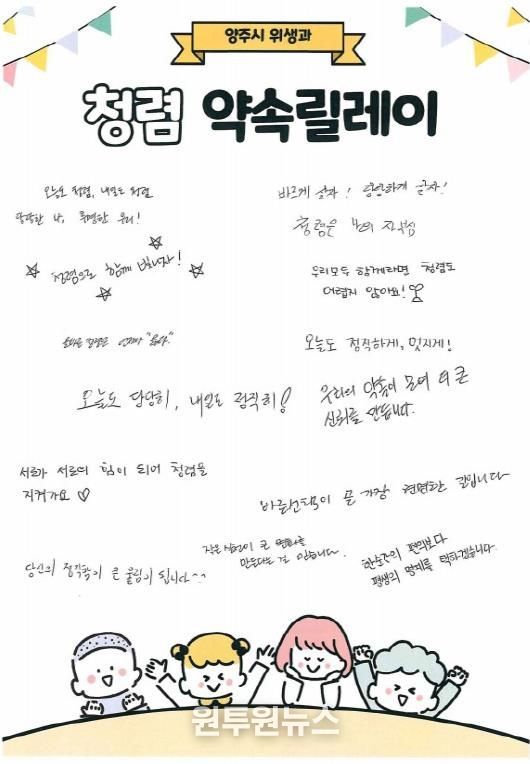 양주시 위생과
청렴 약속릴레이
오늘도 청렴, 내일도 청렴
당당한 나, 투명한 우리!
바르게 살자! 당당하게 살자!
청렴은 나의 자부심
청렴으로 함께 빛나자!
우리모두 함께라면 청렴도
어렵지 않아요!
오늘도 정직하게, 멋지게!
오늘도 당당히, 내일도 정직히!
우리의 약속이 모여 더 큰
신뢰를 만듭니다.
서로가 서로의 힘이 되어 청렴을
지켜가요 ♡
바른선택이 곧 가장 현명한 길입니다
작은 실천이 큰 변화를
만든다는 걸 믿습니다.
한순간의 편의보다
평생의 명예를 택하겠습니다.
당신의 정직함이 큰 울림이 됩니다^^
원투원뉴스